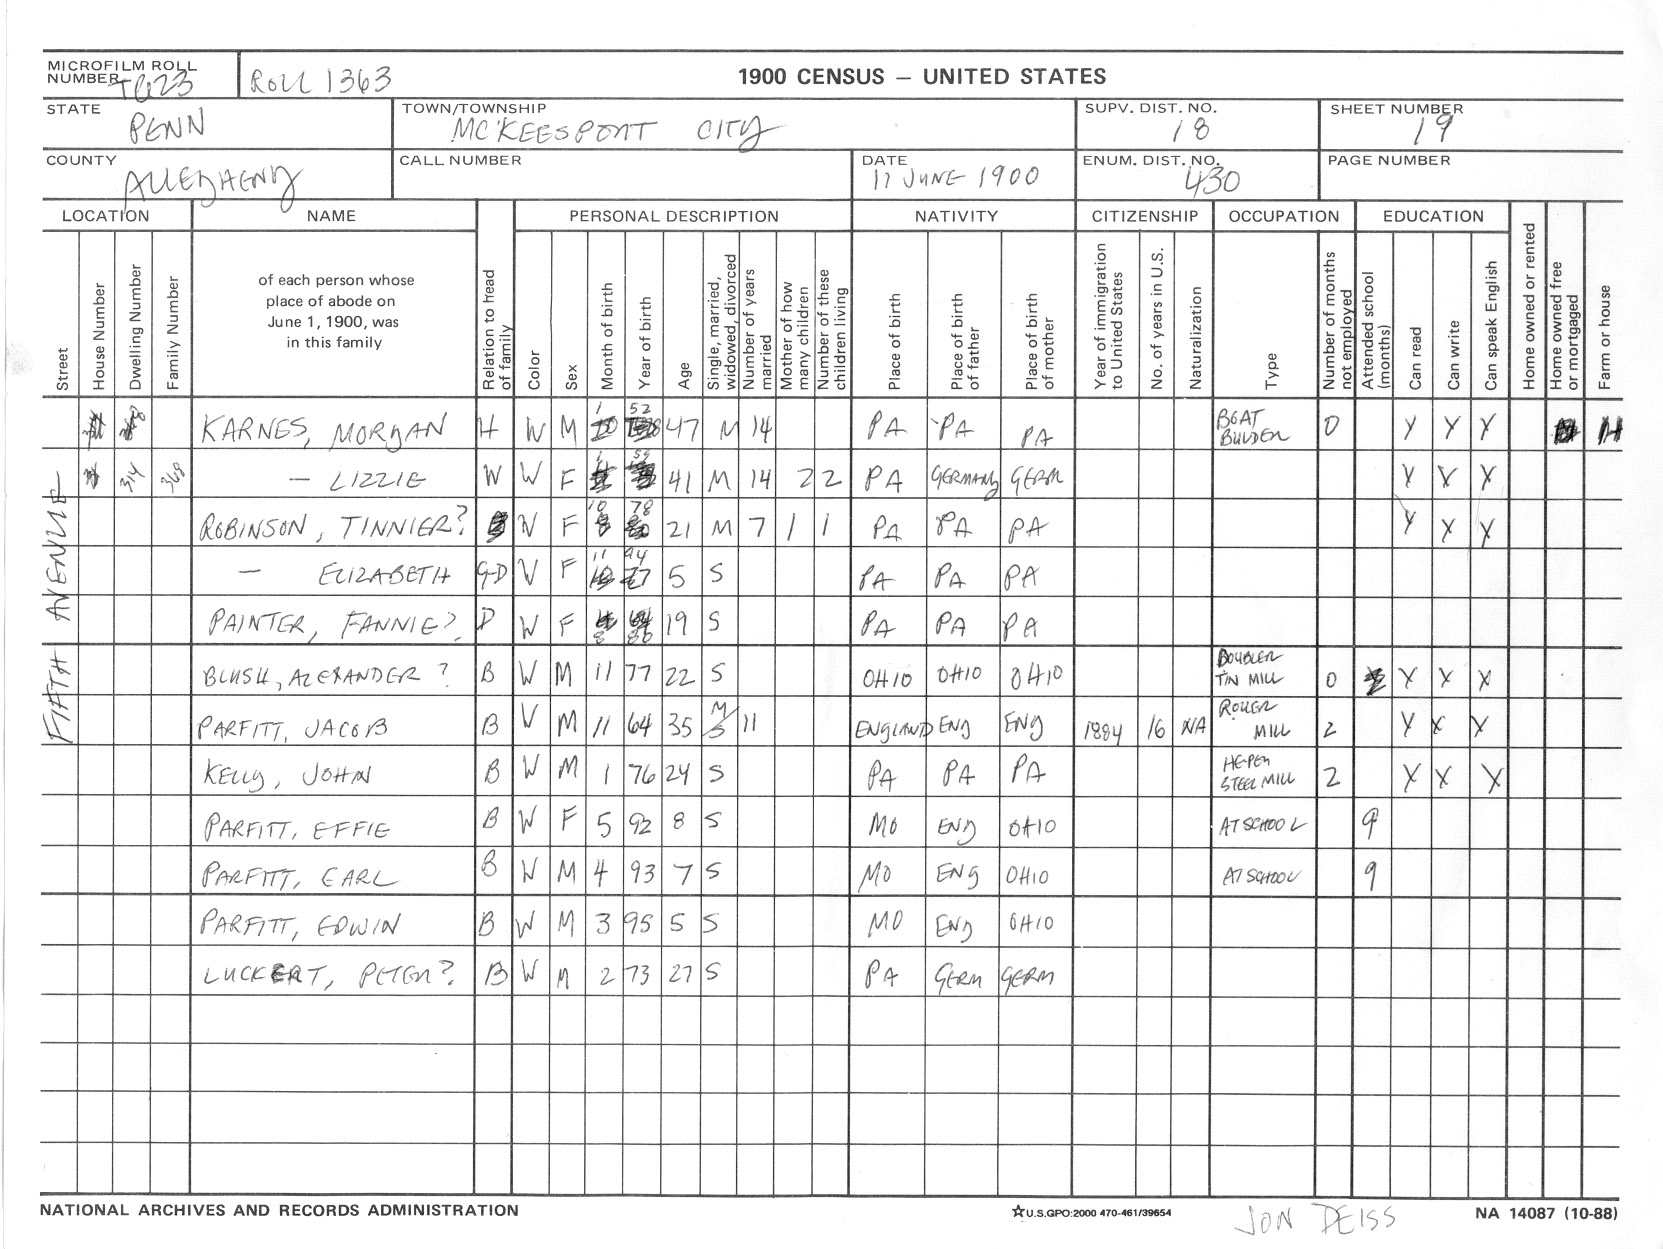 MICROFILM ROLL NUMBER T623 ROLL 1363 1900 CENSUS — UNITED STATES
STATE PENN TOWN/TOWNSHIP MC'KEESPORT CITY SUPV. DIST. NO. 18 SHEET NUMBER 19
COUNTY ALLEGHENY CALL NUMBER DATE 11 JUNE 1900 ENUM. DIST. NO. 430 PAGE NUMBER
LOCATION NAME PERSONAL DESCRIPTION NATIVITY CITIZENSHIP OCCUPATION EDUCATION
Street House Number Dwelling Number Family Number of each person whose place of abode on June 1, 1900, was in this family Relation to head of family Color Sex Month of birth Year of birth Age Single, married, widowed, divorced Number of years married Mother of how many children Number of these children living Place of birth Place of birth of father Place of birth of mother Year of immigration to United States No. of years in U.S. Naturalization Type Number of months not employed Attended school (months) Can read Can write Can speak English Home owned or rented Home owned free or mortgaged Farm or house
FIFTH AVENUE
KARNES, MORGAN H W M 1 52 47 M 14 PA PA PA BOAT BUILDER 0 Y Y Y H
314 368 — LIZZIE W W F 59 41 M 14 2 2 PA GERMANY GERM Y Y Y
ROBINSON, TINNIER? W F 10 78 21 M 7 1 1 PA PA PA Y Y Y
— ELIZABETH G-D W F 11 94 5 S PA PA PA
PAINTER, FANNIE? D W F 8 80 19 S PA PA PA
BLUSH, ALEXANDER ? B W M 11 77 22 S OHIO OHIO OHIO DOUBLER TIN MILL 0 Y Y Y
PARFITT, JACOB B W M 11 64 35 M/S 11 ENGLAND ENG ENG 1884 16 NA ROLLER MILL 2 Y Y Y
KELLY, JOHN B W M 1 76 24 S PA PA PA HELPER STEEL MILL 2 Y Y Y
PARFITT, EFFIE B W F 5 92 8 S MO ENG OHIO AT SCHOOL 9
PARFITT, EARL B W M 4 93 7 S MO ENG OHIO AT SCHOOL 9
PARFITT, EDWIN B W M 3 95 5 S MO ENG OHIO
LUCKERT, PETER? B W M 2 73 27 S PA GERM GERM
NATIONAL ARCHIVES AND RECORDS ADMINISTRATION ☆U.S.GPO:2000 470-461/39654 JON DEISS NA 14087 (10-88)